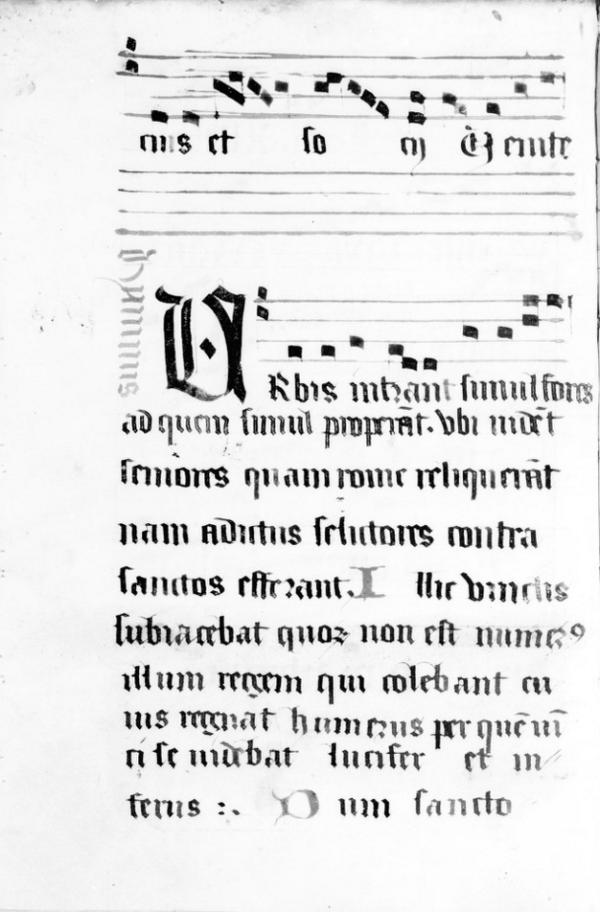 eius et so cij Euite
Himnus
URbis intrant simul fores
ad quem simul properāt. Vbi uidēt
seniores quam rome reliquerāt
nam adictus selutores contra
sanctos efferant. Illic vinctis
subiacebat quoꝝ non est numerꝰ
illum regem qui colebant cu
ius regnat humerus per quē uī
ci se uidebat lucifer et in
ferus :. Dum sancto